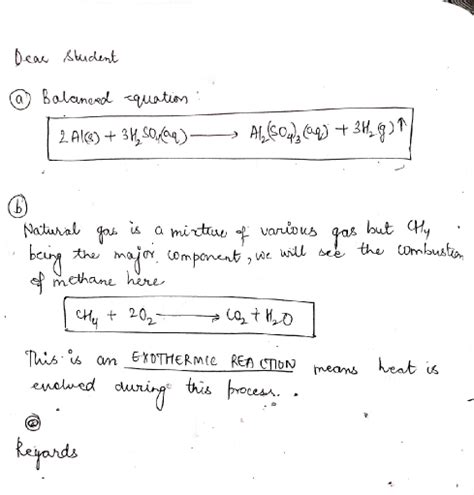 Dear Student
(a) Balanced equation:
2Al(s) + 3H₂SO₄(aq) ⟶ Al₂(SO₄)₃(aq) + 3H₂(g)↑
(b)
Natural gas is a mixture of various gas but CH₄
being the major component, we will see the combustion
of methane here
CH₄ + 2O₂ ⟶ CO₂ + H₂O
This is an EXOTHERMIC REACTION means heat is
evolved during this process.
Regards